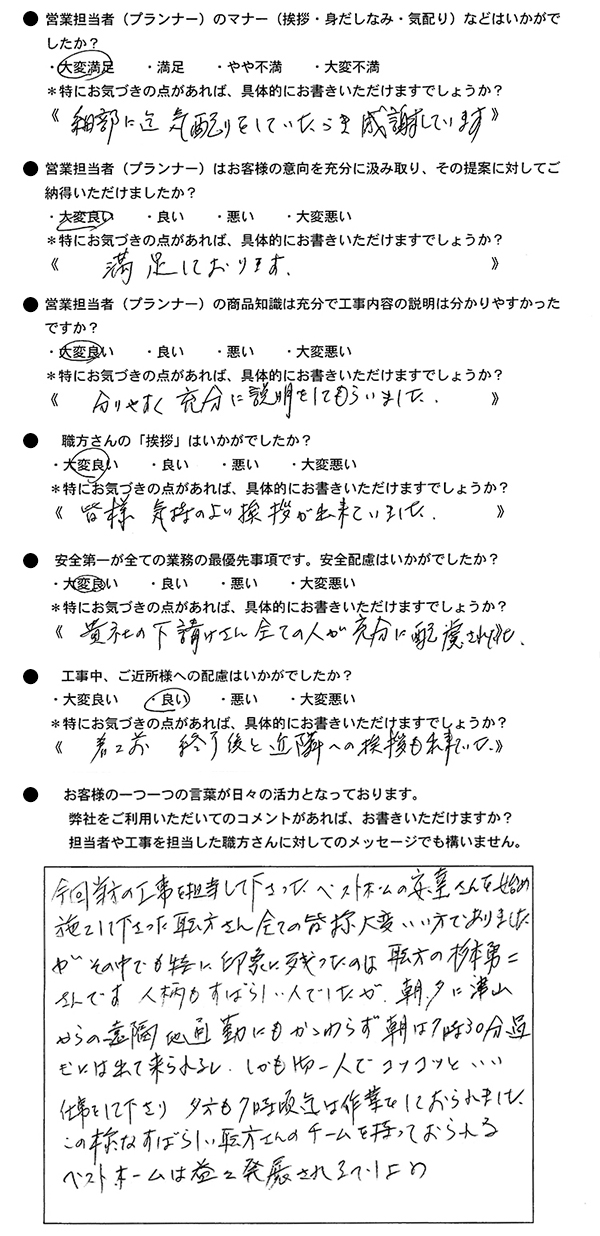 ● 営業担当者（プランナー）のマナー（挨拶・身だしなみ・気配り）などはいかがで
したか？
・大変満足　・満足　・やや不満　・大変不満
＊特にお気づきの点があれば、具体的にお書きいただけますでしょうか？
《 細部に迄 気配りをしていたゞき 感謝しています 》
● 営業担当者（プランナー）はお客様の意向を充分に汲み取り、その提案に対してご
納得いただけましたか？
・大変良い　・良い　・悪い　・大変悪い
＊特にお気づきの点があれば、具体的にお書きいただけますでしょうか？
《 満足しております. 》
● 営業担当者（プランナー）の商品知識は充分で工事内容の説明は分かりやすかった
ですか？
・大変良い　・良い　・悪い　・大変悪い
＊特にお気づきの点があれば、具体的にお書きいただけますでしょうか？
《 分りやすく 充分に説明をしてもらいました. 》
● 職方さんの「挨拶」はいかがでしたか？
・大変良い　・良い　・悪い　・大変悪い
＊特にお気づきの点があれば、具体的にお書きいただけますでしょうか？
《 皆様 気持のよい挨拶が出来ていました. 》
● 安全第一が全ての業務の最優先事項です。安全配慮はいかがでしたか？
・大変良い　・良い　・悪い　・大変悪い
＊特にお気づきの点があれば、具体的にお書きいただけますでしょうか？
《 貴社の下請けさん 全ての人が充分に配慮されて 》
● 工事中、ご近所様への配慮はいかがでしたか？
・大変良い　・良い　・悪い　・大変悪い
＊特にお気づきの点があれば、具体的にお書きいただけますでしょうか？
《 着工前 終了後と近隣への挨拶も出来ていた. 》
● お客様の一つ一つの言葉が日々の活力となっております。
弊社をご利用いただいてのコメントがあれば、お書きいただけますか？
担当者や工事を担当した職方さんに対してのメッセージでも構いません。
今回当方の工事を担当して下さった ベストホームの安達さんを始め
施工して下さった職方さん全ての皆様大変いい方でありました
が その中でも特に印象に残ったのは 職方の杉本勇二
さんです 人柄もすばらしい人でしたが. 朝.夕に津山
からの遠隔地通勤にもかゝわらず朝は7時30分過
には出て来られるし. しかも 一人でコツコツと いい
仕事をして下さり 夕方も7時頃迄は作業をしておられました.
この様なすばらしい職方さんのチームを持っておられる
ベストホームは益々発展されるでしょう